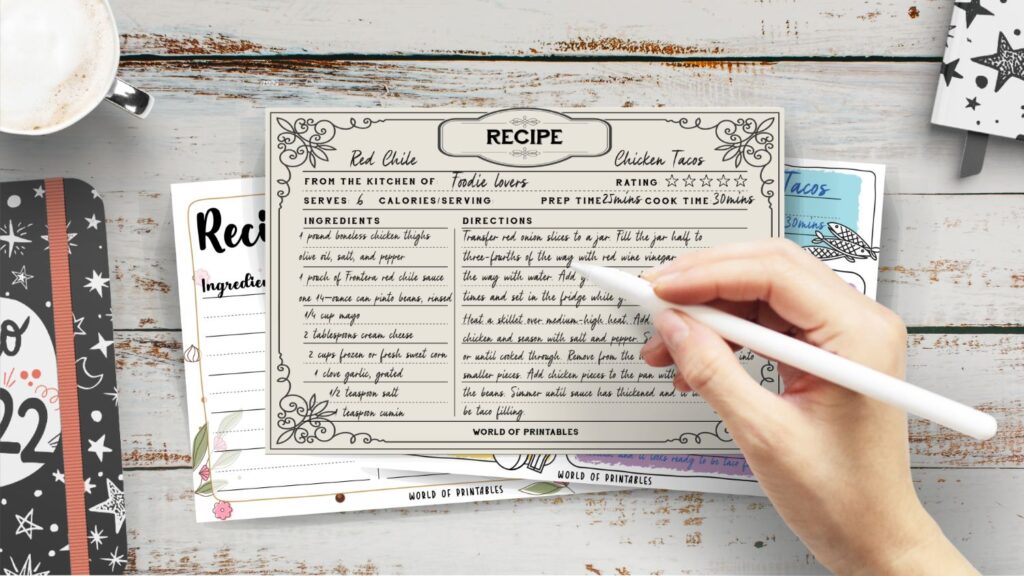 RECIPE
Red Chile Chicken Tacos
FROM THE KITCHEN OF Foodie lovers RATING
SERVES 6 CALORIES/SERVING PREP TIME 25mins COOK TIME 30mins
INGREDIENTS
1 pound boneless chicken thighs
olive oil, salt, and pepper
1 pouch of Frontera red chile sauce
one 14-ounce can pinto beans, rinsed
1/4 cup mayo
2 tablespoons cream cheese
2 cups frozen or fresh sweet corn
1 clove garlic, grated
1/2 teaspoon salt
1 teaspoon cumin
DIRECTIONS
Transfer red onion slices to a jar. Fill the jar half to
three-fourths of the way with red wine vinegar
the way with water. Add
times and set in the fridge while y
Heat a skillet over medium-high heat. Add
chicken and season with salt and pepper.
or until cooked through. Remove from the into
smaller pieces. Add chicken pieces to the pan
the beans. Simmer until sauce has thickened and it
be taco filling.
WORLD OF PRINTABLES
Reci
Ingredien
WORLD OF PRINTABLES
Tacos
30mins
and it looks ready to be taco f
WORLD OF PRINTABLES
22